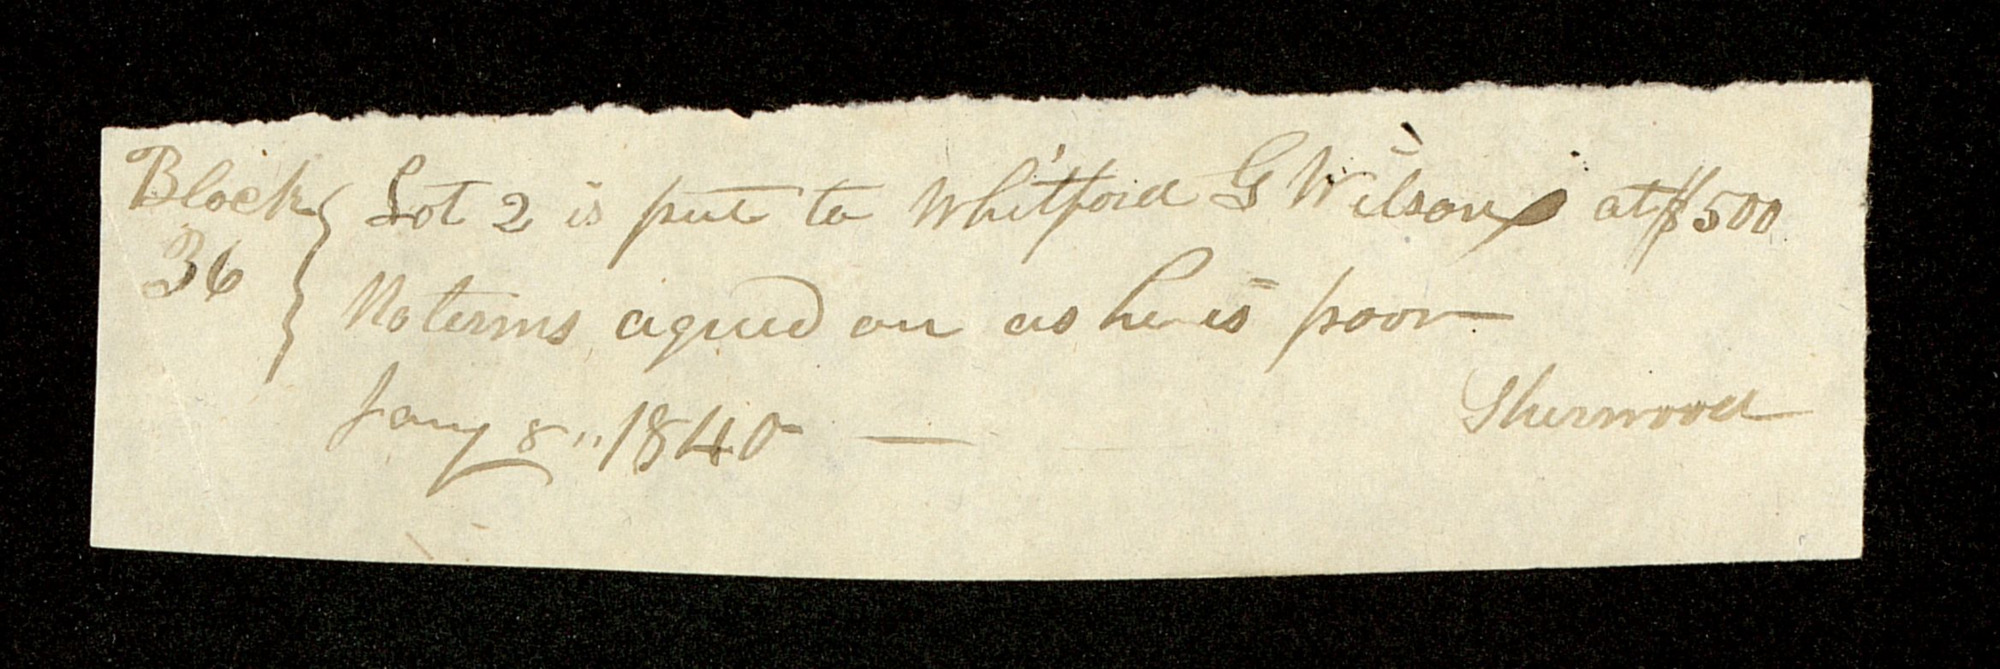 Block 36 { Lot 2 is put to Whitford G Wilson at $500
No terms agreed on as he is poor
Jany 8" 1840 —
Sherwood